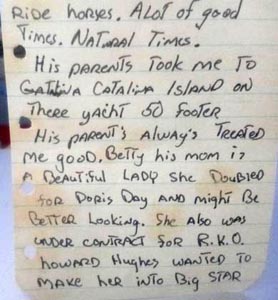 Ride horses. A Lot of good
Times. Natural Times.
His parents Took me To
Catalina Island on
There yacht 50 footer
His parent's Alway's Treated
me good. Betty his mom is
A Beautiful LADY She Doubled
for Doris Day AND might Be
BeTTer Looking. She Also was
under contract for R.K.O.
howard Hughes wanted to
make her into Big STAR